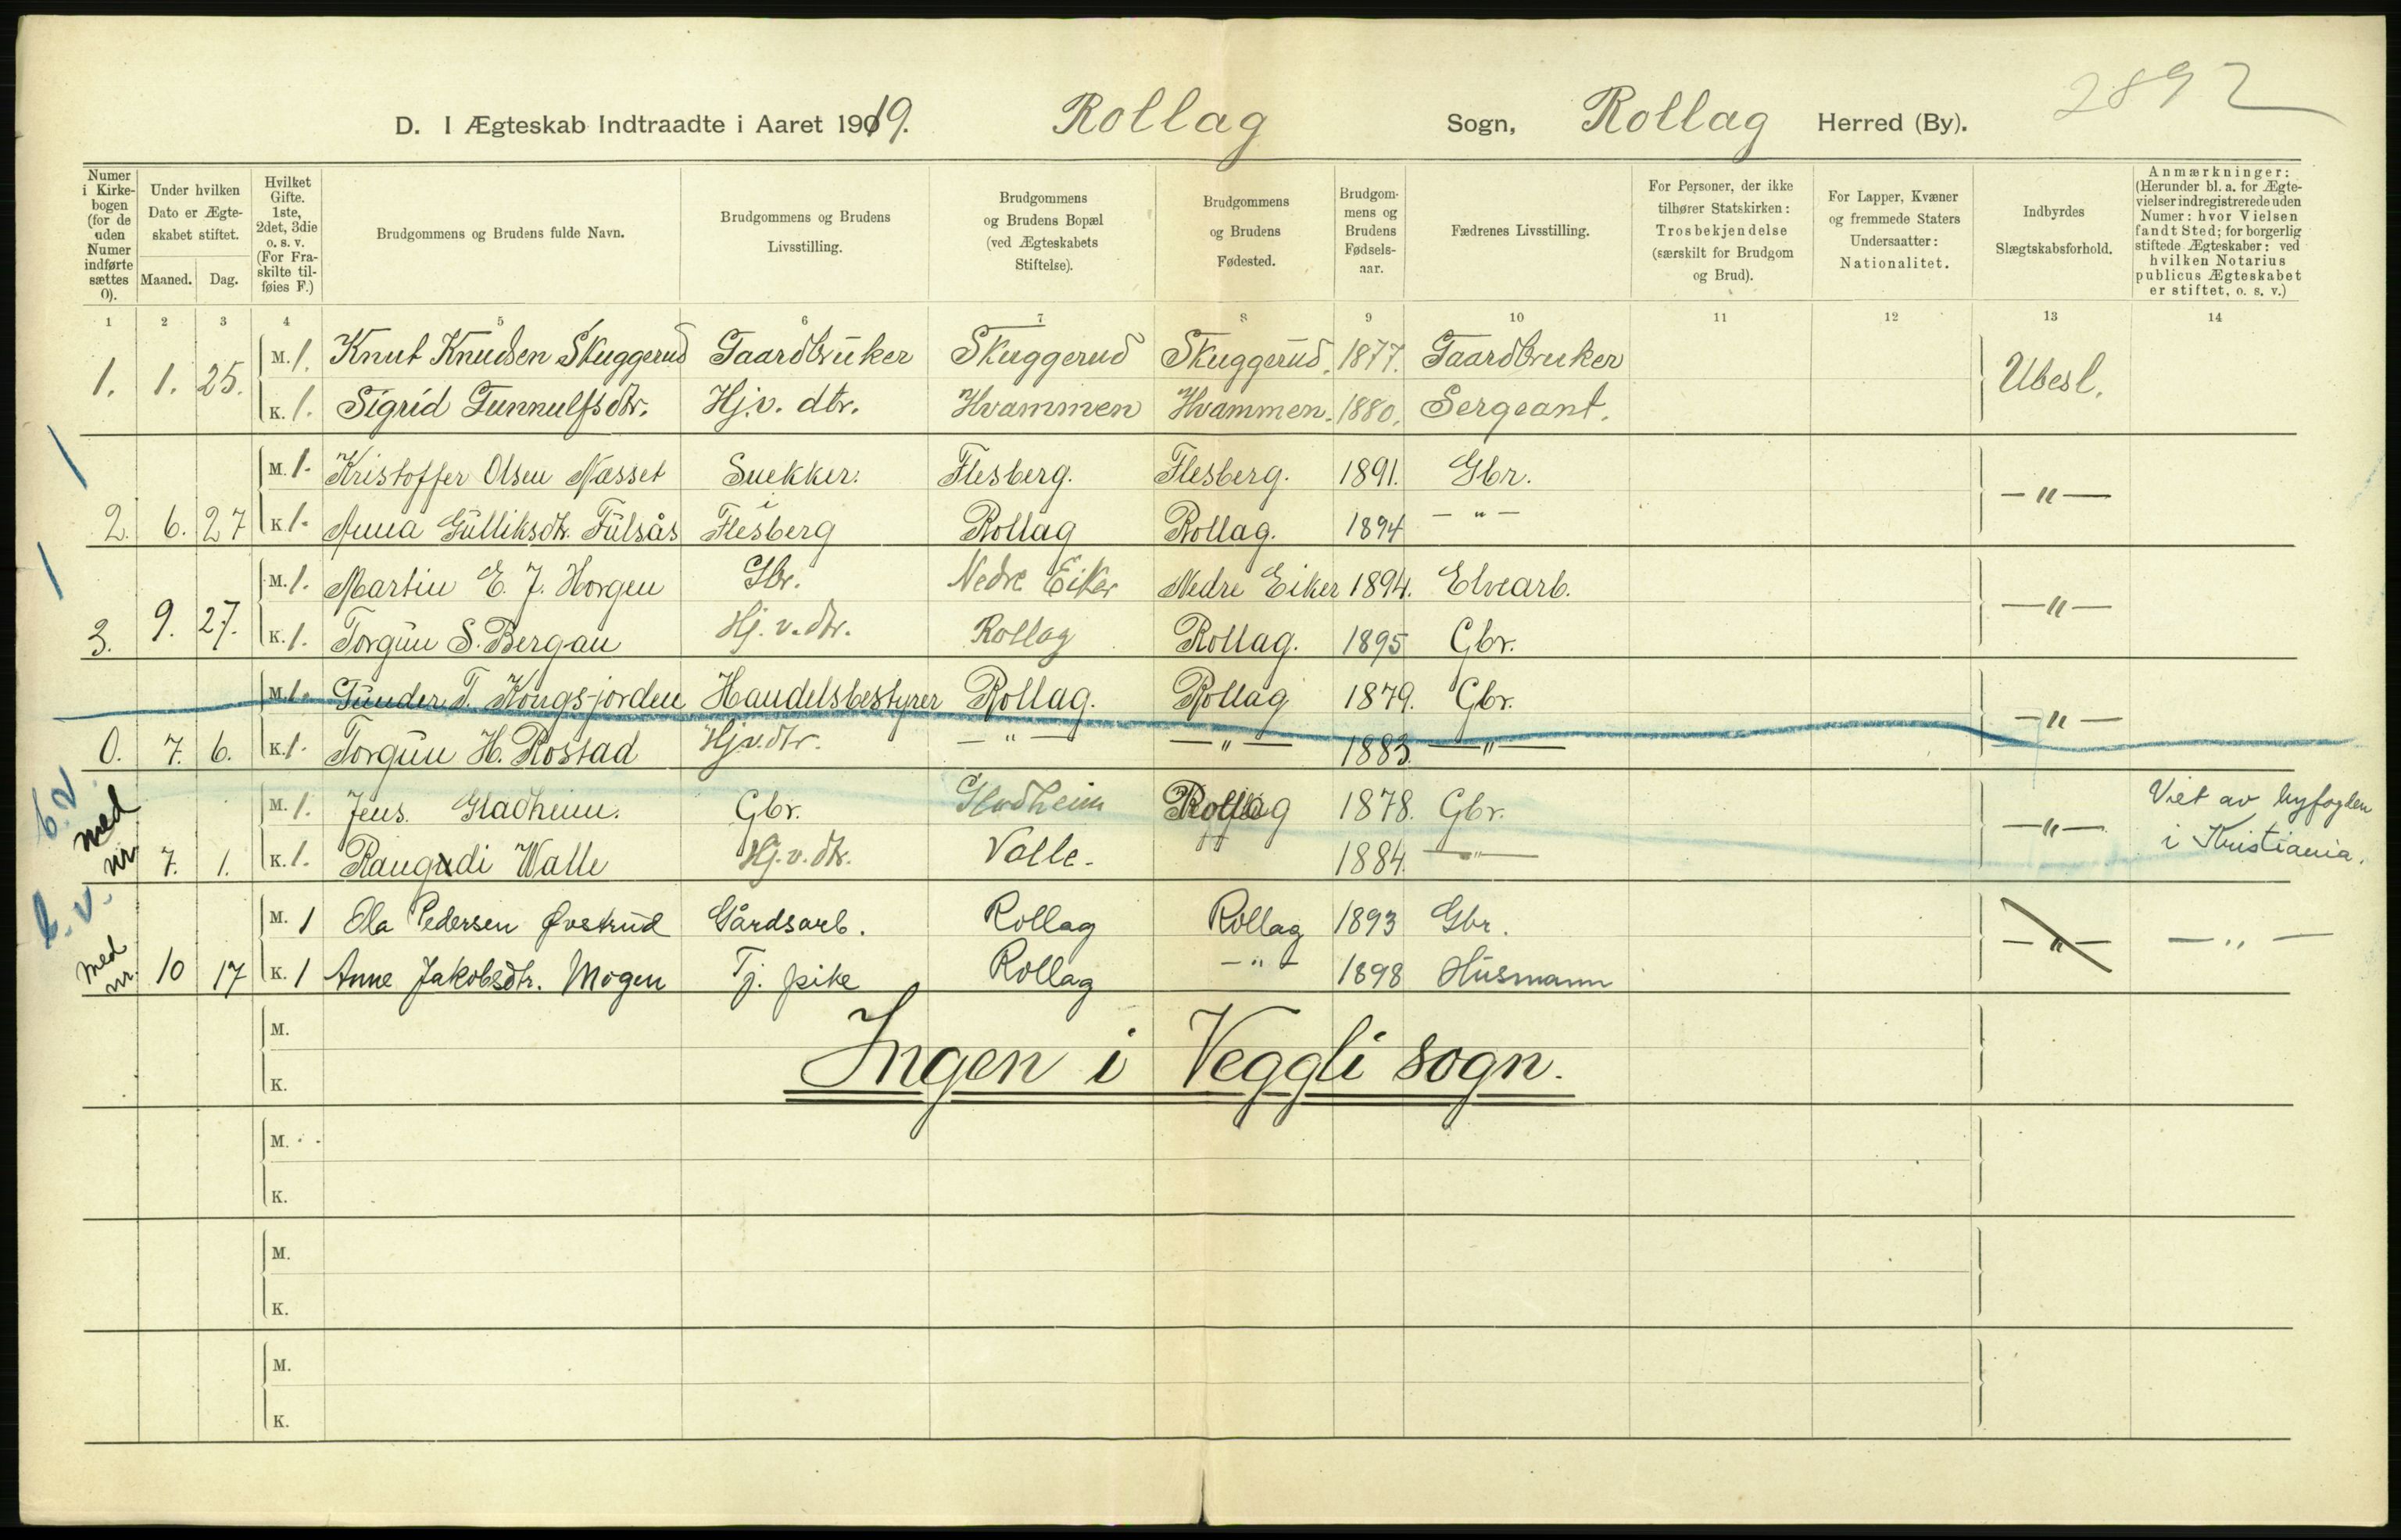 2892
D. I Ægteskab Indtraadte i Aaret 1919. Rollag Sogn, Rollag Herred (By).
Numer i Kirkebogen (for de uden Numer indførte sættes 0).
Under hvilken Dato er Ægteskabet stiftet.
Maaned. Dag.
Hvilket Gifte. 1ste, 2det, 3die o. s. v. (For Fraskilte tilføies F.)
Brudgommens og Brudens fulde Navn.
Brudgommens og Brudens Livsstilling.
Brudgommens og Brudens Bopæl (ved Ægteskabets Stiftelse).
Brudgommens og Brudens Fødested.
Brudgommens og Brudens Fødselsaar.
Fædrenes Livsstilling.
For Personer, der ikke tilhører Statskirken: Trosbekjendelse (særskilt for Brudgom og Brud).
For Lapper, Kvæner og fremmede Staters Undersaatter: Nationalitet.
Indbyrdes Slægtskabsforhold.
Anmærkninger: (Herunder bl. a. for Ægtevielser indregistrerede uden Numer: hvor Vielsen fandt Sted; for borgerlig stiftede Ægteskaber: ved hvilken Notarius publicus Ægteskabet er stiftet, o. s. v.)
1 2 3 4 5 6 7 8 9 10 11 12 13 14
M. 1. Knut Knudsen Skuggerud Gaardbruker Skuggerud Skuggerud. 1877. Gaardbruker
1. 1. 25. Ubesl.
K. 1. Sigrid Gunnulfsdtr. Hj.v. dtr. Hvammen Hvammen. 1880. Sergeant.
1
M. 1. Kristoffer Olsen Næsset Snekker. Flesberg. Flesberg. 1891. Gbr.
— " —
2. 6. 27 K. 1. Anna Gulliksdtr. Fulsås i Flesberg Rollag Rollag. 1894 — " —
1
M. 1. Martin E. J. Horgen Gbr. Nedre Eiker Nedre Eiker 1894. Elvearb.
— " —
3. 9. 27. K. 1. Torgun S. Bergan Hj. v. dtr. Rollag Rollag. 1895 Gbr.
M. 1. Gunder T. Kongsjorden Handelsbestyrer Rollag. Rollag 1879. Gbr.
— " —
0. 7. 6. K. 1. Torgun H. Rostad Hj.v.dtr. — " — — " — 1883. — " —
b.v.
M. 1. Jens. Gladheim. Gbr. Gladheim Rollag 1878. Gbr. Viet av byfogden
med nr.
— " —
7. 1. K. 1. Rangdi Walle Hj. v. dtr. Valle. 1884. — " — i Kristiania.
b. v.
M. 1 Ola Pedersen Øvstrud Gårdsarb. Rollag Rollag 1893 Gbr.
— " — — " —
med nr. 10 17 K. 1 Anne Jakobsdtr. Mogen Tj. pike Rollag — " — 1898 Husmann
M.
Ingen i Veggli sogn.
K.
M.
K.
M.
K.
M.
K.